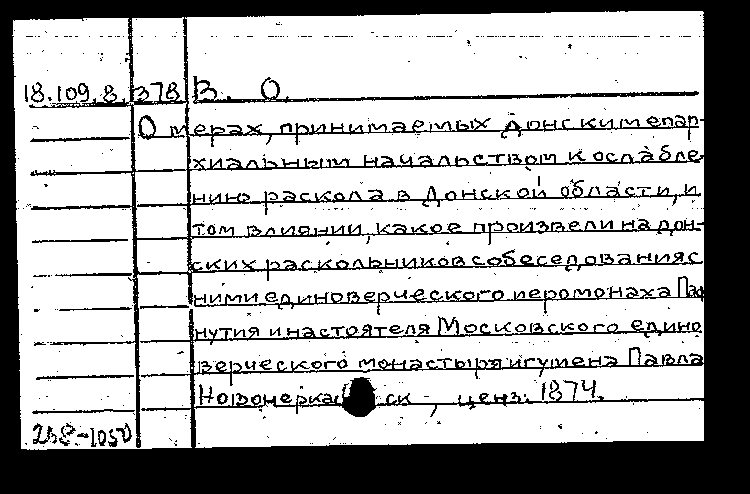 18.109.8.378 В. О.
О мерах, принимаемых донским епар-
хиальным начальством к ослабле-
нию раскола в Донской области, и
том влиянии, какое произвели на дон-
ских раскольников собеседования с
ними единоверческого иеромонаха Паф
нутия и настоятеля Московского едино
верческого монастыря игумена Павла
Новочеркасск, ценз. 1874.
258-1050